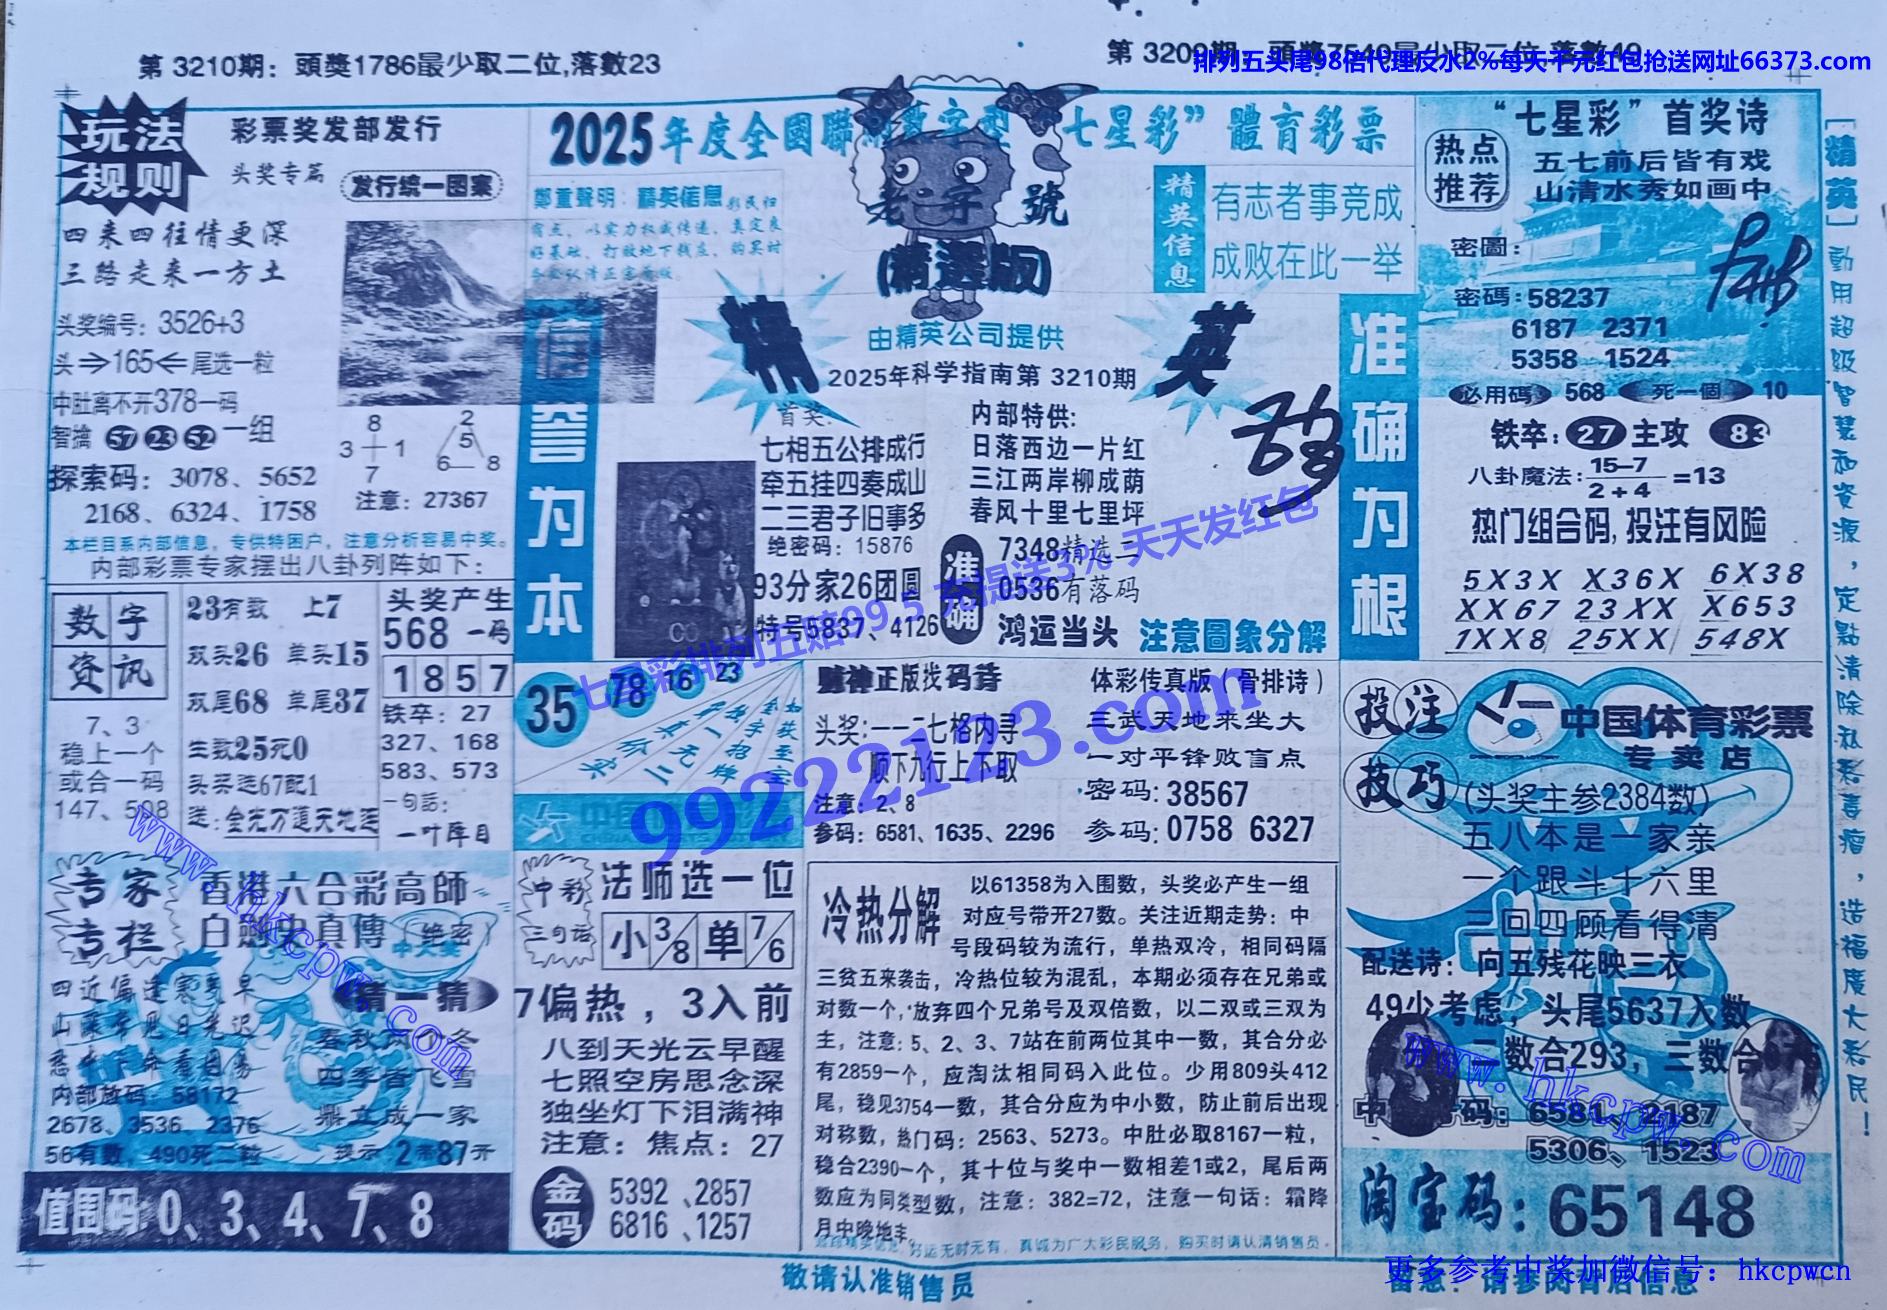 第 3210期：頭獎1786最少取二位,落數23
第 3209期：頭獎7540最少取二位,落數49
排列五头尾98倍代理反水2%每天千元红包抢送网址66373.com
玩法
规则
彩票奖发部发行
头奖专篇
发行统一图案
四来四往情更深
三路走来一方土
头奖编号：3526+3
头⇒165⇐尾选一粒
中肚离不开378一码
智擒 57 23 52 一组
8
3 + 1
7
2
5
6 — 8
探索码：3078、5652
2168、6324、1758
注意：27367
本栏目系内部信息，专供特困户，注意分析容易中奖。
内部彩票专家摆出八卦列阵如下：
数字
资讯
7、3
稳上一个
或合一码
147、508
23有数 上7
双头26 单头15
双尾68 单尾37
生数25死0
头奖选67配1
送：金光万道天地运
头奖产生
568 一码
1857
铁卒：27
327、168
583、573
一句話：
一叶障目
专家
专栏
香港六合彩高師
(绝密)
中大奖
猜一猜
春秋两个冬
四季皆飞雪
鼎立成一家
内部放码：58172
2678、3536、2376
56有数，490死二粒
提示：2带87开
值围码:0、3、4、7、8
2025年度全國聯網數字型“七星彩”體育彩票
鄭重聲明：精英信息
老字號
(精選版)
精英信息
有志者事竞成
成败在此一举
信誉为本
准确为根
精英
由精英公司提供
2025年科学指南第 3210期
首奖：
七相五公排成行
牵五挂四奏成山
二三君子旧事多
绝密码：15876
93分家26团圆
特号5837、4126
内部特供:
日落西边一片红
三江两岸柳成荫
春风十里七里坪
准确
7348精选二
0536有落码
鸿运当头 注意圖象分解
七星彩排列五赔99.5 充提送3% 天天发红包
35 78 16 23
财神正版找码诗
头奖:一一二七格内寻
顺下九行上不取
注意：2、8
参码：6581、1635、2296
体彩传真版（骨排诗）
三武天地来坐大
一对平锋败盲点
密码：38567
参码：0758 6327
99222123.com
中彩
三句话
法师选一位
小 3/8 单 7/6
7偏热，3入前
八到天光云早醒
七照空房思念深
独坐灯下泪满神
注意：焦点：27
金码
5392、2857
6816、1257
冷热分解
以61358为入围数，头奖必产生一组
对应号带开27数。关注近期走势：中
号段码较为流行，单热双冷，相同码隔
三贫五来袭击，冷热位较为混乱，本期必须存在兄弟或
对数一个，放弃四个兄弟号及双倍数，以二双或三双为
主，注意：5、2、3、7站在前两位其中一数，其合分必
有2859一个，应淘汰相同码入此位。少用809头412
尾，稳见3754一数，其合分应为中小数，防止前后出现
对称数，热门码：2563、5273。中肚必取8167一粒，
稳合2390一个，其十位与奖中一数相差1或2，尾后两
数应为同类型数，注意：382=72，注意一句话：霜降
月中晚地丰。
好运无时无有，真诚为广大彩民服务，购买时请认清销售员。
敬请认准销售员
“七星彩”首奖诗
热点
推荐
五七前后皆有戏
山清水秀如画中
密圖：
密碼：58237
6187 2371
5358 1524
必用碼 568 死一個 10
铁卒：27 主攻 83
八卦魔法：15—7 / 2+4 =13
热门组合码,投注有风险
5X3X X36X 6X38
XX67 23XX X653
1XX8 25XX 548X
投注
技巧
中国体育彩票
专卖店
(头奖主参2384数)
五八本是一家亲
一个跟斗十六里
三回四顾看得清
配送诗：问五残花映三衣
49少考虑，头尾5637入数
二数合293，三数合
6581、2187
5306、1523
淘宝码：65148
[精英]動用超级智慧和资源，定點清除私彩毒瘤，造福廣大彩民！
www.hkcpw.com
www.hkcpw.com
更多参考中奖加微信号：hkcpwcn